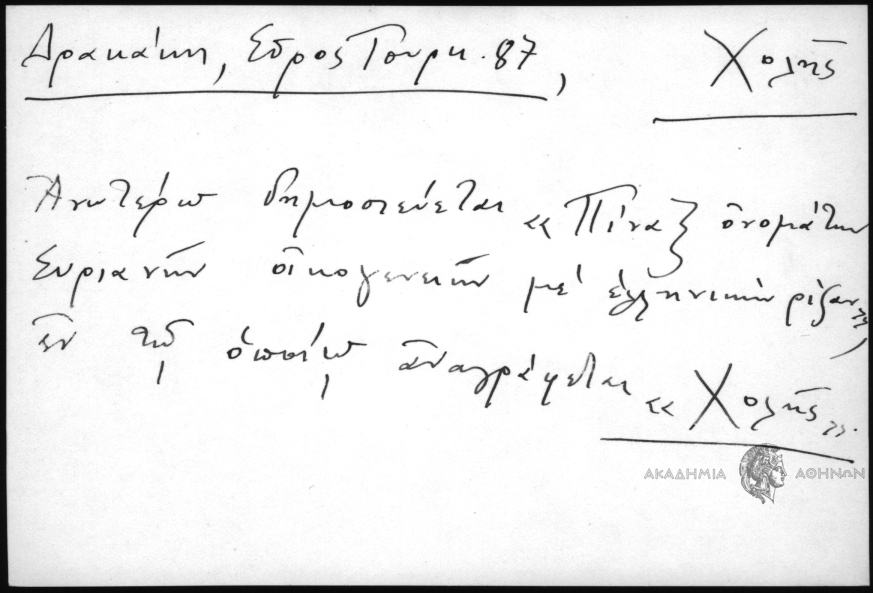 Δρακάκη, Σῦρος Τουρκ. 87, Χολῆς
Ἀνωτέρω δημοσιεύεται «Πίναξ ὀνομάτων
Συριανῶν οἰκογενειῶν μέ ἑλληνικήν ρίζαν»,
ἐν τῷ ὁποίῳ ἀναγράφεται «Χολῆς».
ΑΚΑΔΗΜΙΑ ΑΘΗΝΩΝ